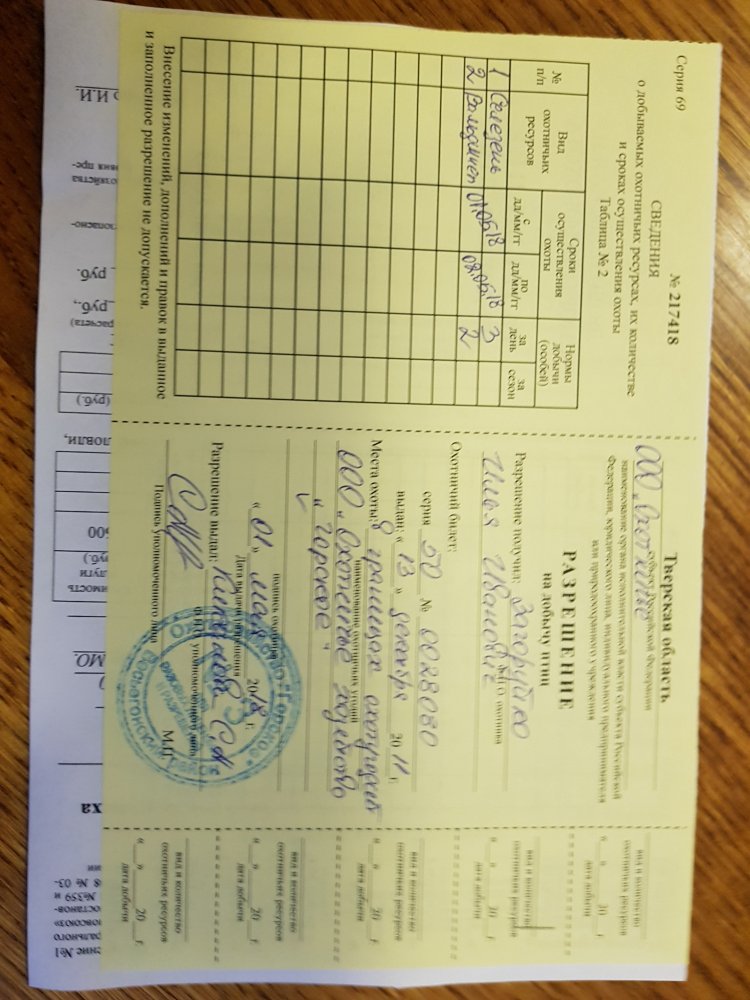 Серия 69
№ 217418
СВЕДЕНИЯ
о добываемых охотничьих ресурсах, их количестве
и сроках осуществления охоты
Таблица № 2
№ п/п
Вид охотничьих ресурсов
Сроки осуществления охоты
Нормы добычи (особей)
с дд/мм/гг
по дд/мм/гг
за день
за сезон
1 Селезень 01.05.18 08.05.18 3
2 Вальдшнеп 2
Внесение изменений, дополнений и правок в выданное
и заполненное разрешение не допускается.
Тверская область
субъект Российской Федерации
ООО "Охотничье
наименование органа исполнительной власти субъекта Российской
Федерации, юридического лица, индивидуального предпринимателя
или природоохранного учреждения
РАЗРЕШЕНИЕ
на добычу птиц
Разрешение получил: Загоруйко
Ф.И.О. охотника
Илья Иванович
Охотничий билет:
серия 50 № 0028080
выдан: « 13 » декабря 20 11 г.
Места охоты: В границах охотугодий
наименование охотничьих угодий
ООО "Охотничье хозяйство
"Горское"
подпись охотника
« 01 » мая 20 18 г.
Дата выдачи разрешения
Разрешение выдал:
Ф.И.О. уполномоченного лица
Подпись уполномоченного лица
М.П.
вид и количество
охотничьих ресурсов
« » 20 г
дата добычи
вид и количество
охотничьих ресурсов
« » 20 г
дата добычи
вид и количество
охотничьих ресурсов
« » 20 г
дата добычи
вид и количество
охотничьих ресурсов
« » 20 г
дата добычи
вид и количество
охотничьих ресурсов
« » 20 г
дата добычи
И.И.
руб.
руб.,
расчета)
(руб.)
ловли,
600
(руб.)
луги
имость
МО
ха
№359 и
8 № 03-
ение №1